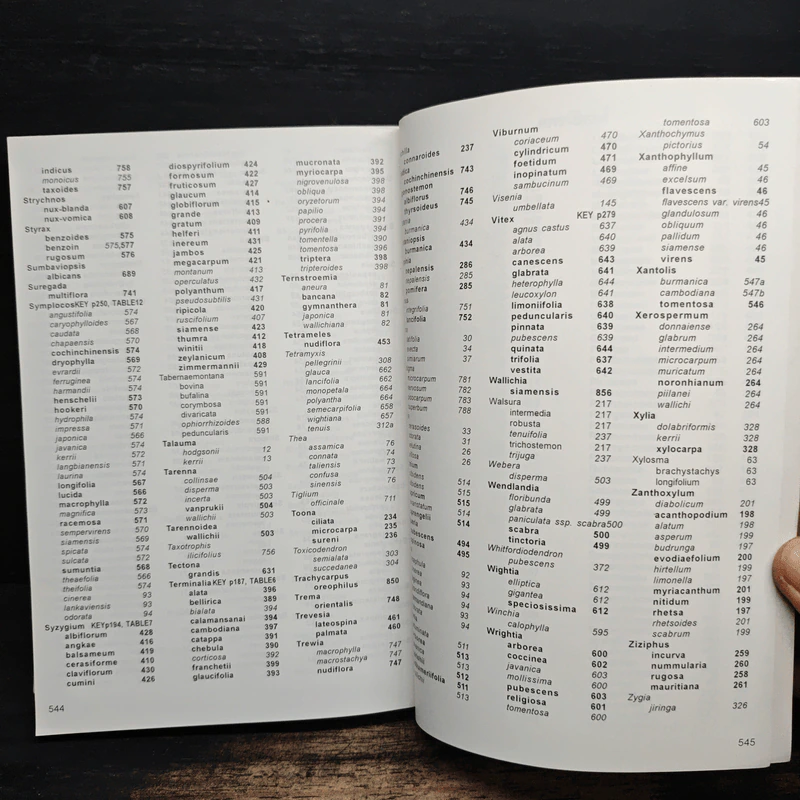 indicus 758
monoicus 755
taxoides 757
Strychnos
nux-blanda 607
nux-vomica 608
Styrax
benzoides 575
benzoin 575,577
rugosum 576
Sumbaviopsis
albicans 689
Suregada
multiflora 741
Symplocos KEY p250, TABLE12
angustifolia 574
caryophylloides 567
caudata 568
chapaensis 570
cochinchinensis 574
dryophylla 569
evrardii 572
ferruginea 574
harmandii 574
henschelii 573
hookeri 570
hydrophila 574
impressa 571
japonica 566
javanica 574
kerrii 572
langbianensis 571
laurina 574
longifolia 567
lucida 566
macrophylla 572
magnifica 573
racemosa 571
sempervirens 570
siamensis 569
spicata 574
sulcata 572
sumuntia 568
theaefolia 566
theifolia 574
cinerea 93
lankaviensis 93
odorata 94
Syzygium KEYp194, TABLE7
albiflorum 428
angkae 416
balsameum 419
cerasiforme 410
claviflorum 430
cumini 426
diospyrifolium 424
formosum 422
fruticosum 427
glaucum 414
globiflorum 415
grande 413
gratum 409
helferi 411
inereum 431
jambos 425
megacarpum 421
montanum 413
operculatum 432
polyanthum 417
pseudosubtilis 431
ripicola 420
ruscifolium 407
siamense 423
thumra 412
winitii 418
zeylanicum 408
zimmermannii 429
Tabernaemontana 591
bovina 591
bufalina 591
corymbosa 591
divaricata 591
ophiorrhizoides 588
peduncularis 591
Talauma
hodgsonii 12
kerrii 13
Tarenna
collinsae 504
disperma 503
incerta 503
vanprukii 504
wallichii 503
Tarennoidea
wallichii 503
Taxotrophis
ilicifolius 756
Tectona
grandis 631
Terminalia KEY p187, TABLE6
alata 396
bellirica 389
bialata 394
calamansanai 394
cambodiana 397
catappa 391
chebula 390
corticosa 392
franchetii 399
glaucifolia 393
mucronata 392
myriocarpa 395
nigrovenulosa 398
obliqua 398
oryzetorum 394
papilio 394
procera 391
pyrifolia 394
tomentella 390
tomentosa 396
triptera 398
tripteroides 398
Ternstroemia
aneura 81
bancana 82
gymnanthera 81
japonica 81
wallichiana 82
Tetrameles
nudiflora 453
Tetramyxis
pellegrinii 308
glauca 662
lancifolia 662
monopetala 664
polyantha 664
semecarpifolia 658
wightiana 657
tenuis 312a
Thea
assamica 76
connata 74
taliensis 73
confusa 77
sinensis 76
Tiglium
officinale 711
Toona
ciliata 234
microcarpa 235
sureni 236
Toxicodendron
semialata 303
succedanea 304
Trachycarpus
oreophilus 850
Trema
orientalis 748
Trevesia
lateospina 461
palmata 460
Trewia
macrophylla 747
macrostachya 747
nudiflora 747
544
237
connaroides
cochinchinensis 743
746
745
434
434
286
285
285
751
752
30
34
37
781
782
783
788
33
31
26
26
514
515
515
514
494
495
92
93
94
94
94
511
513
512
511
513
Viburnum
coriaceum 470
cylindricum 470
foetidum 471
inopinatum 469
sambucinum 469
Visenia
umbellata 145
Vitex KEY p279
agnus castus 637
alata 640
arborea 639
canescens 643
glabrata 641
heterophylla 644
leucoxylon 641
limoniifolia 638
peduncularis 640
pinnata 639
pubescens 639
quinata 644
trifolia 637
vestita 642
Wallichia
siamensis 856
Walsura
intermedia 217
robusta 217
tenuifolia 237
trichostemon 217
trijuga 237
Webera
disperma 503
Wendlandia
floribunda 499
glabrata 499
paniculata ssp. scabra500
scabra 500
tinctoria 499
Whitfordiodendron
pubescens 372
Wightia
elliptica 612
gigantea 612
speciosissima 612
Winchia
calophylla 595
Wrightia
arborea 600
coccinea 602
javanica 603
mollissima 600
pubescens 603
religiosa 601
tomentosa 600
tomentosa 603
Xanthochymus
pictorius 54
Xanthophyllum
affine 45
excelsum 46
flavescens 46
flavescens var. virens45
glandulosum 46
obliquum 46
pallidum 46
siamense 46
virens 45
Xantolis
burmanica 547a
cambodiana 547b
tomentosa 546
Xerospermum
donnaiense 264
glabrum 264
intermedium 264
microcarpum 264
muricatum 264
noronhianum 264
piilanei 264
wallichi 264
Xylia
dolabriformis 328
kerrii 328
xylocarpa 328
Xylosma 63
brachystachys 63
longifolium 63
Zanthoxylum
diabolicum 201
acanthopodium 198
alatum 198
asperum 199
budrunga 197
evodiaefolium 200
hirtellum 199
limonella 197
myriacanthum 201
nitidum 199
rhetsa 197
rhetsoides 201
scabrum 199
Ziziphus
incurva 259
nummularia 260
rugosa 258
mauritiana 261
Zygia
jiringa 326
545